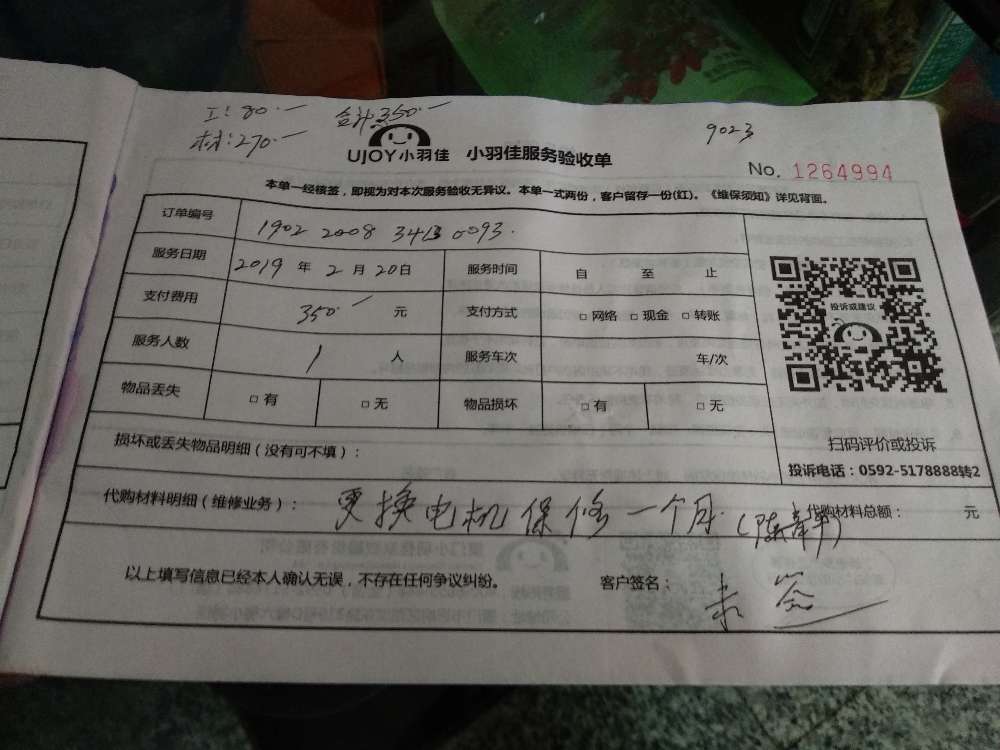 工:80.一
合计350.一
材:270.一
9023
UJOY小羽佳 小羽佳服务验收单
No. 1264994
本单一经核签，即视为对本次服务验收无异议。本单一式两份，客户留存一份(红)。《维保须知》详见背面。
订单编号 1902 2008 3413 0093.
服务日期 2019 年 2 月 20日 服务时间 自 至 止
支付费用 350.一 元 支付方式 □ 网络 □ 现金 □ 转账
服务人数 1 人 服务车次 车/次
物品丢失 □ 有 □ 无 物品损坏 □ 有 □ 无
投诉或建议
扫码评价或投诉
投诉电话：0592-5178888转2
损坏或丢失物品明细（没有可不填）：
代购材料明细（维修业务）： 更换电机保修一个月. 代购材料总额： 元
以上填写信息已经本人确认无误，不存在任何争议纠纷。 客户签名： 未签